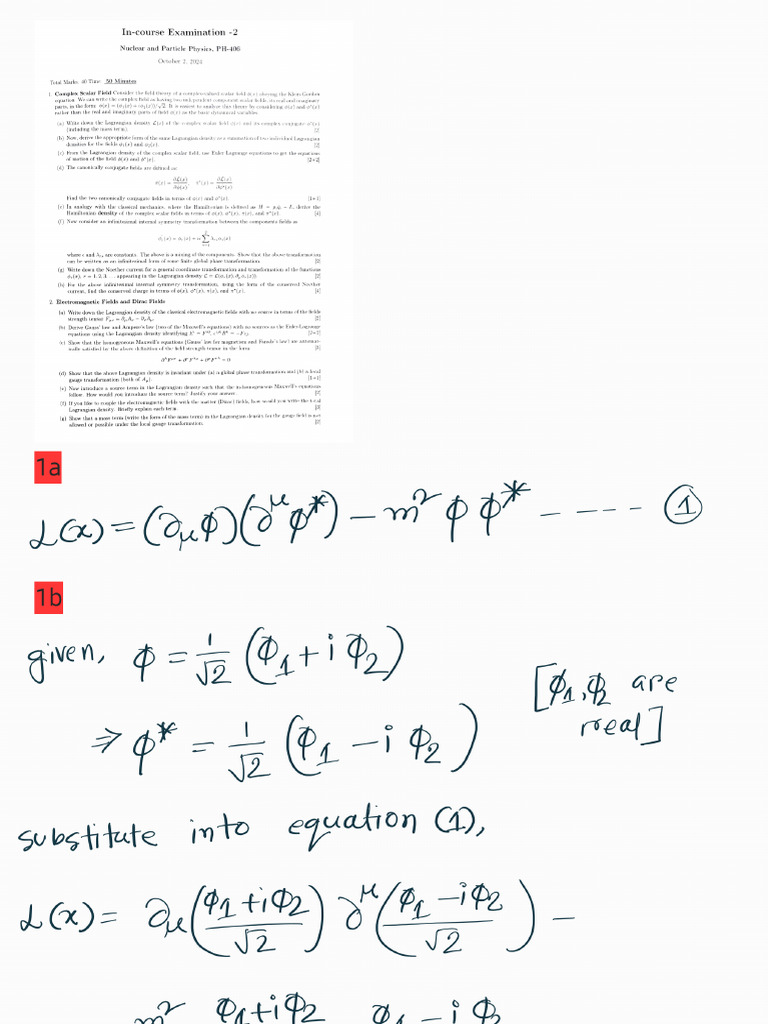 In-course Examination -2
Nuclear and Particle Physics, PH-406
October 2, 2024
Total Marks: 40 Time: 50 Minutes
1. Complex Scalar Field Consider the field theory of a complex-valued scalar field ϕ(x) obeying the Klein-Gordon
equation. We can write the complex field as having two independent component scalar fields, its real and imaginary
parts, in the form: ϕ(x) = (ϕ₁(x) + iϕ₂(x))/√2. It is easiest to analyze this theory by considering ϕ(x) and ϕ*(x)
rather than the real and imaginary parts of field ϕ(x) as the basic dynamical variables.
(a) Write down the Lagrangian density ℒ(x) of the complex scalar field ϕ(x) and its complex conjugate ϕ*(x)
(including the mass term). [2]
(b) Now, derive the appropriate form of the same Lagrangian density as a summation of two individual Lagrangian
densities for the fields ϕ₁(x) and ϕ₂(x). [2]
(c) From the Lagrangian density of the complex scalar field, use Euler-Lagrange equations to get the equations
of motion of the field ϕ(x) and ϕ*(x). [2+2]
(d) The canonically conjugate fields are defined as:
π(x) = ∂ℒ(x)/∂ϕ̇(x), π*(x) = ∂ℒ(x)/∂ϕ̇*(x)
Find the two canonically conjugate fields in terms of ϕ(x) and ϕ*(x). [1+1]
(e) In analogy with the classical mechanics, where the Hamiltonian is defined as derive the
Hamiltonian density of the complex scalar fields in terms of ϕ(x), ϕ*(x), π(x), and π*(x). [4]
(f) Now consider an infinitesimal internal symmetry transformation between the components fields as
where ϵ and λ are constants. The above is a mixing of the components. Show that the above transformation
can be written as an infinitesimal form of some finite global phase transformation.
(g) Write down the Noether current for a general coordinate transformation and transformation of the functions
appearing in the Lagrangian density
(h) For the above infinitesimal internal symmetry transformation, using the form of the conserved Noether
current, find the conserved charge in terms of ϕ(x), ϕ*(x), π(x), and π*(x). [4]
2. Electromagnetic Fields and Dirac Fields
(a) Write down the Lagrangian density of the classical electromagnetic fields with no source in terms of the fields
strength tensor
(b) Derive Gauss' law and Ampere's law (two of the Maxwell's equations) with no sources as the Euler-Lagrange
equations using the Lagrangian density identifying
(c) Show that the homogeneous Maxwell's equations (Gauss' law for magnetism and Faraday's law) are automatically
satisfied by the above definition of the field strength tensor in the form
(d) Show that the above Lagrangian density is invariant under (a) a global phase transformation and (b) a local
gauge transformation
(e) Now introduce a source term in the Lagrangian density such that the in-homogeneous Maxwell's equations
follow. How would you introduce the source term? Justify your answer.
(f) If you like to couple the electromagnetic fields with the matter (Dirac) fields, how would you write the total
Lagrangian density. Briefly explain each term.
(g) Show that a mass term (write the form of the mass term) in the Lagrangian density for the gauge field is not
allowed or possible under the local gauge transformation.
1a
ℒ(x) = (∂_μ ϕ)(∂^μ ϕ*) − m² ϕ ϕ* - - - - - ①
1b
given, ϕ = 1/√2 (ϕ₁ + i ϕ₂)
⇒ ϕ* = 1/√2 (ϕ₁ − i ϕ₂)
[ϕ₁, ϕ₂ are
real]
substitute into equation (1),
ℒ(x) = ∂_μ((ϕ₁ + iϕ₂)/√2) ∂^μ((ϕ₁ − iϕ₂)/√2) −
m² ϕ₁ + iϕ₂ ϕ₁ − i ϕ₂